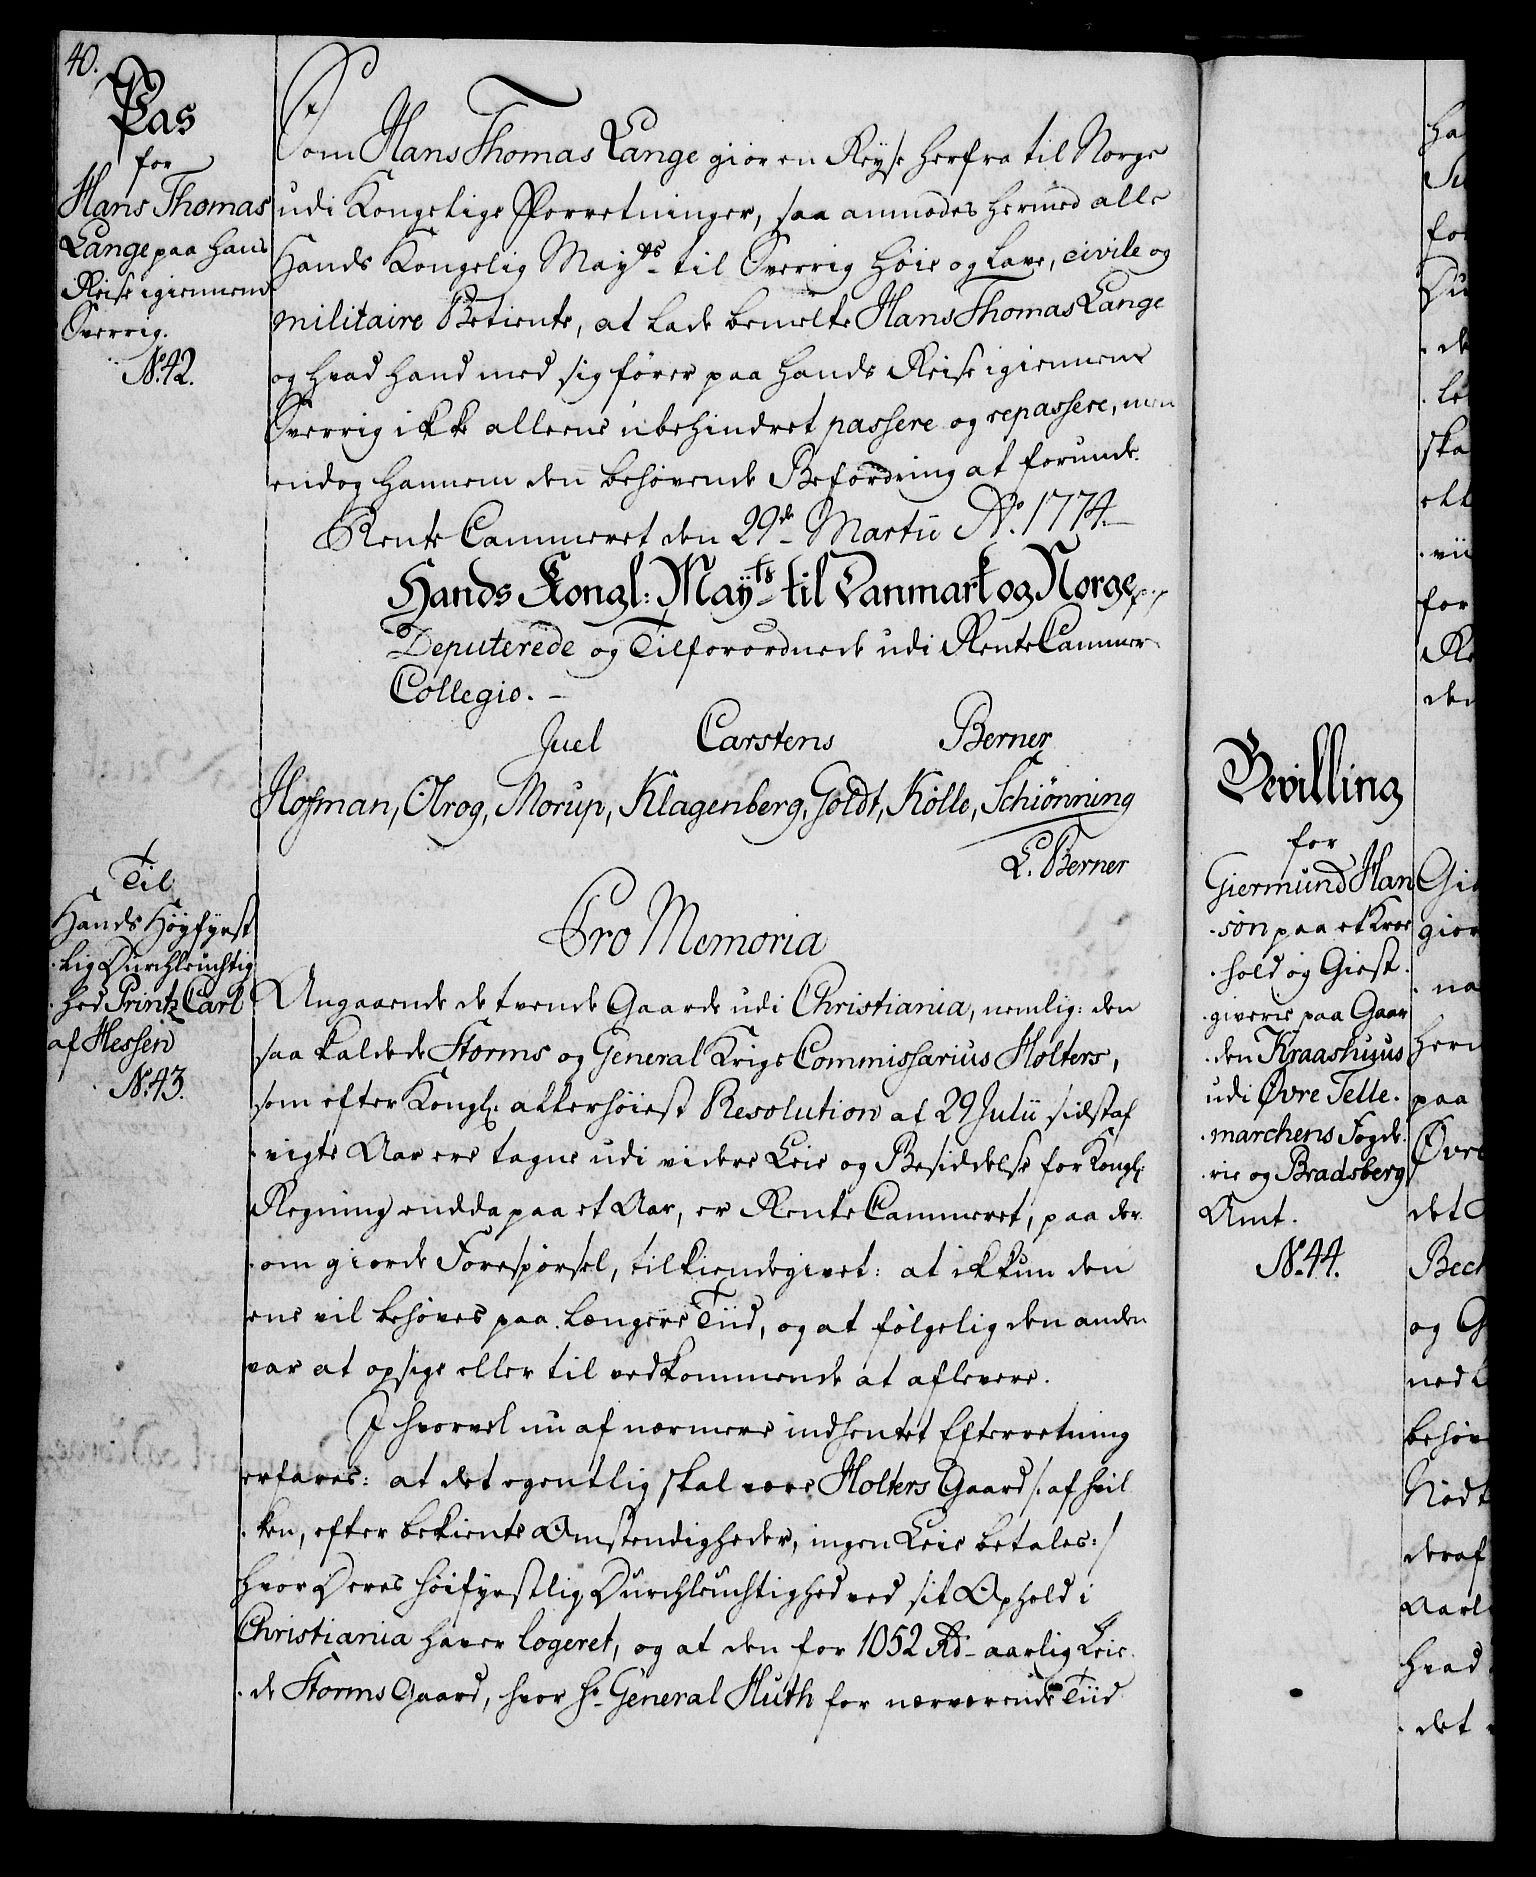 40.
Pas
for
Hans Thomas
Lange paa hans
Reise igiennem
Sverrig.
No. 42.
Som Hans Thomas Lange giør en Reyse herfra til Norge
udi Kongelige Forretninger, saa anmodes hermed alle
Hands Kongelig Mayts til Sverrig høie og Lave, civile og
militaire Betiente, at lade bemelte Hans Thomas Lange
og hvad hand med sig fører paa hands Reise igiennem
Sverrig ikke alleene ubehindret passere og repassere, men
endog hannem den behøvende Befordring at forunde.
Rente Cammeret den 29de Martii Ao. 1774.
Hands Kongl: Mayts til Danmark og Norge p.p
Deputerede og Tilforordnede udi Rente Cammer-
Collegio. -
Juel Carstens Berner
Hofman, Olrog, Morup, Klagenberg, Goldt, Kölle, Schiønning
L. Berner
Til
Hands Høyfyrst
-lig Durchleuchtig
-hed Printz Carl
af Hessen
No. 43.
Pro Memoria
Angaaende de tvende Gaarde udi Christiania, nemlig: den
saa kaldede Storms og General Krigs Commissarius Holters,
som efter Kongl. allerhøiest Resolution af 29 Julii sidstaf
-vigte Aar ere tagne udi videre Leie og Besiddelse for Kongl.
Regning endda paa et Aar, er Rente Cammeret, paa der-
-om giorde Forespørsel, tilkiendegivet: at ikkun den
ene vil behøves paa længere Tiid, og at følgelig den anden
var at opsige eller til vedkommende at aflevere.
I hvorvel nu af nærmere indhentet Efterretning
erfares: at det egentlig skal være Holters Gaard /: af hvil
-ken, efter bekiente Omstendigheder, ingen Leie betales :/
hvor Deres høifyrstlig Durchleuchtighed ved sit Ophold i
Christiania haver logeret, og at den for 1052 Rd- aarlig Leie-
-de Storms Gaard, hvor Hr General Huth for nærværende Tiid
Bevilling
for
Giermund Han
-søn paa et Kroe
-hold og Giest-
-giverie paa Gaar
-den Kraashuus
udi Øvre Telle-
-marchens Fogde-
-rie og Bradsberg
Amt.
No. 44.
ha
Su
for
Du
-de
-le
ska
ell
-vii
for
Re
den
Gie
gior
-na
herm
paa
Øvre
det
Bech
og G
ned
behøv
Nødt
deraf
Aarl
hvad
-det